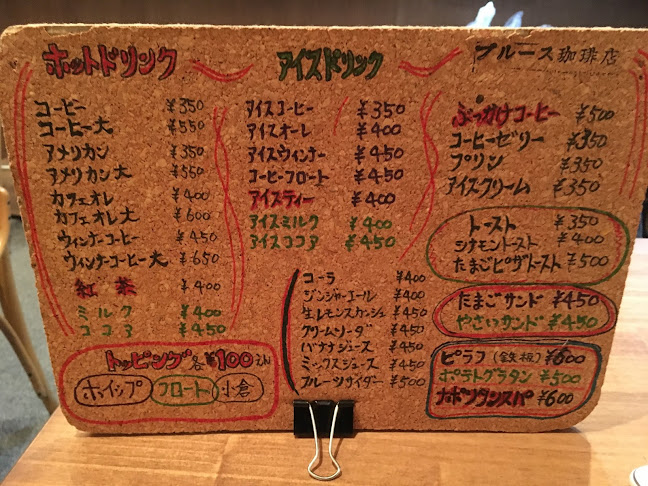 ホットドリンク
コーヒー ¥350
コーヒー大 ¥550
アメリカン ¥350
アメリカン大 ¥550
カフェオレ ¥400
カフェオレ大 ¥600
ウィンナーコーヒー ¥450
ウィンナーコーヒー大 ¥650
紅茶 ¥400
ミルク ¥400
ココア ¥450
トッピング各¥100
ホイップ フロート 小倉
アイスドリンク
アイスコーヒー ¥350
アイスオーレ ¥400
アイスウィンナー ¥450
コーヒーフロート ¥450
アイスティー ¥400
アイスミルク ¥400
アイスココア ¥450
コーラ ¥400
ジンジャーエール ¥400
生レモンスカッシュ ¥400
クリームソーダ ¥450
バナナジュース ¥450
ミックスジュース ¥450
フルーツサイダー ¥500
ブルース珈琲店
ぶっかけコーヒー ¥500
コーヒーゼリー ¥350
プリン ¥350
アイスクリーム ¥350
トースト ¥350
シナモントースト ¥400
たまごピザトースト ¥500
たまごサンド ¥450
やさいサンド ¥450
ピラフ(鉄板) ¥600
ポテトグラタン ¥500
ナポリタンスパ ¥600